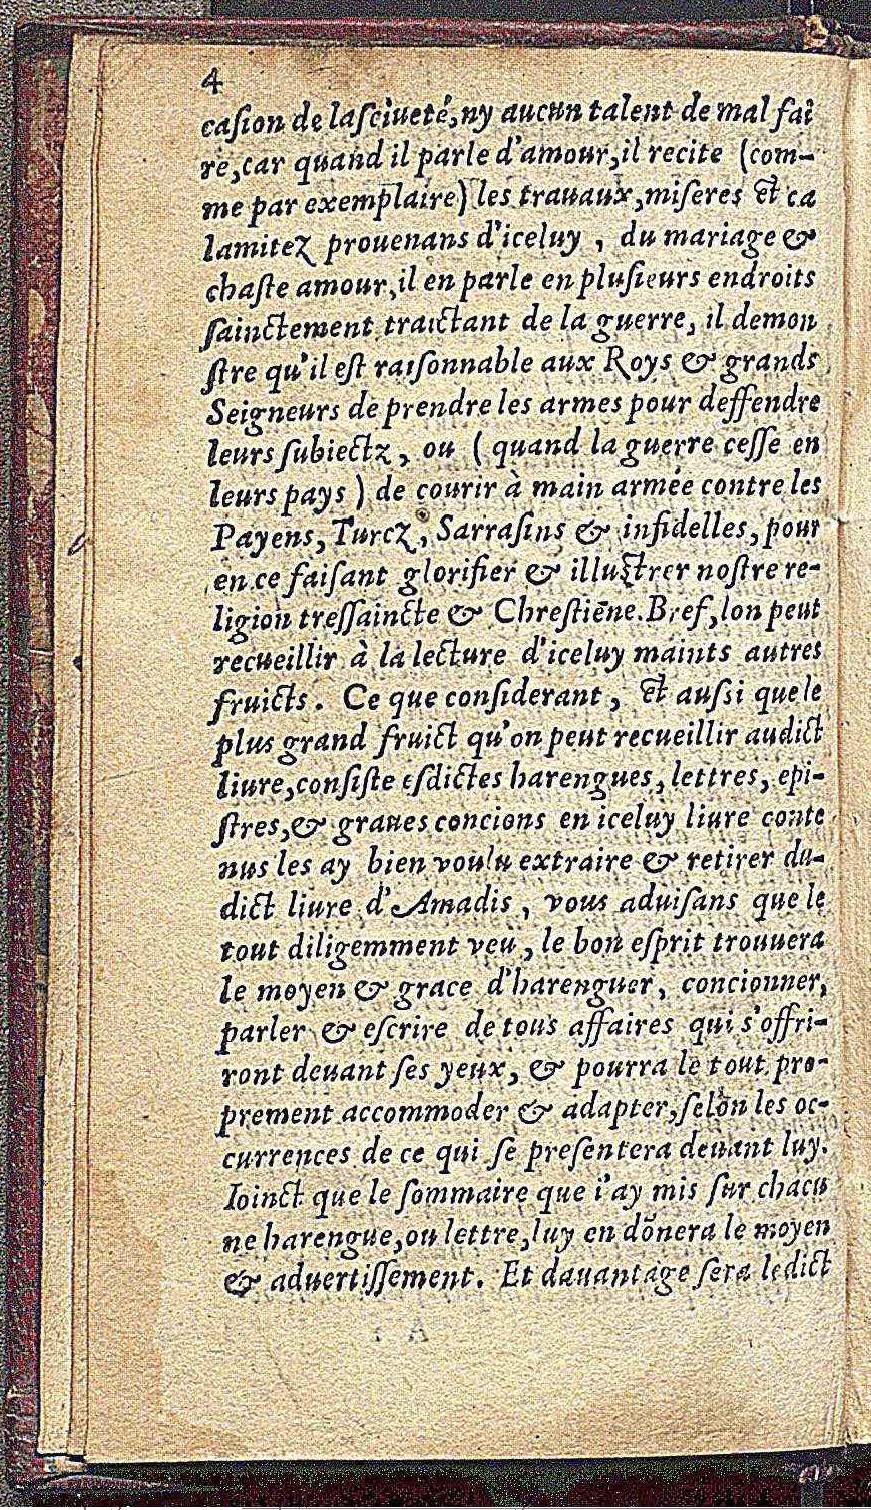 4
casion de lasciueté, ny aucun talent de mal fai
re, car quand il parle d'amour, il recite (com-
me par exemplaire) les trauaux, miseres & ca
lamitez prouenans d'iceluy , du mariage &
chaste amour, il en parle en plusieurs endroits
sainctement traictant de la guerre, il demon
stre qu'il est raisonnable aux Roys & grands
Seigneurs de prendre les armes pour deffendre
leurs subiectz, ou ( quand la guerre cesse en
leurs pays ) de courir à main armée contre les
Payens, Turcz, Sarrasins & infidelles, pour
en ce faisant glorifier & illustrer nostre re-
ligion tressaincte & Chrestiēne. Bref, lon peut
recueillir à la lecture d'iceluy maints autres
fruicts. Ce que considerant, & aussi que le
plus grand fruict qu'on peut recueillir audict
liure, consiste esdictes harengues, lettres, epi-
stres, & graues concions en iceluy liure conte
nus les ay bien voulu extraire & retirer du-
dict liure d'Amadis, vous aduisans que le
tout diligemment veu, le bon esprit trouuera
le moyen & grace d'harenguer, concionner,
parler & escrire de tous affaires qui s'offri-
ront deuant ses yeux, & pourra le tout pro-
prement accommoder & adapter, selon les oc-
currences de ce qui se presentera deuant luy.
Ioinct que le sommaire que i'ay mis sur chacu
ne harengue, ou lettre, luy en dōnera le moyen
& aduertissement. Et dauantage sera ledict